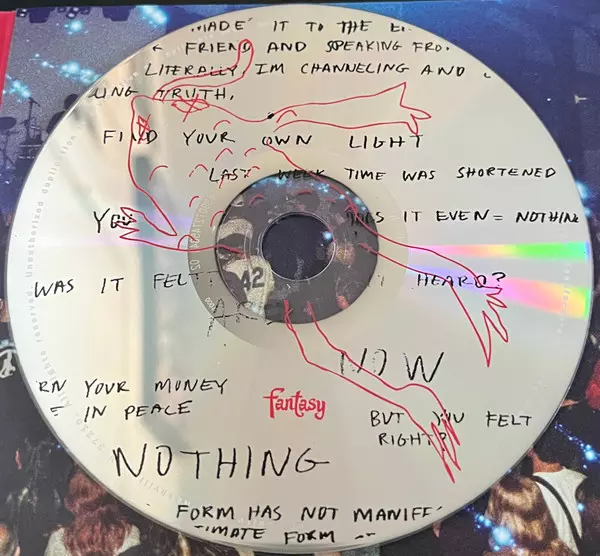 MADE IT TO THE
FRIEND AND SPEAKING FRO
LITERALLY IM CHANNELING AND
ING TRUTH.
FIND YOUR OWN LIGHT
LAST WEEK TIME WAS SHORTENED
IS IT EVEN = NOTHIN
WAS IT FELT HEARD?
42
NOW
RN YOUR MONEY
IN PEACE
fantasy
BUT YOU FELT
RIGHT?
NOTHING
FORM HAS NOT MANIFE
TIMATE FORM
Unauthorized duplication